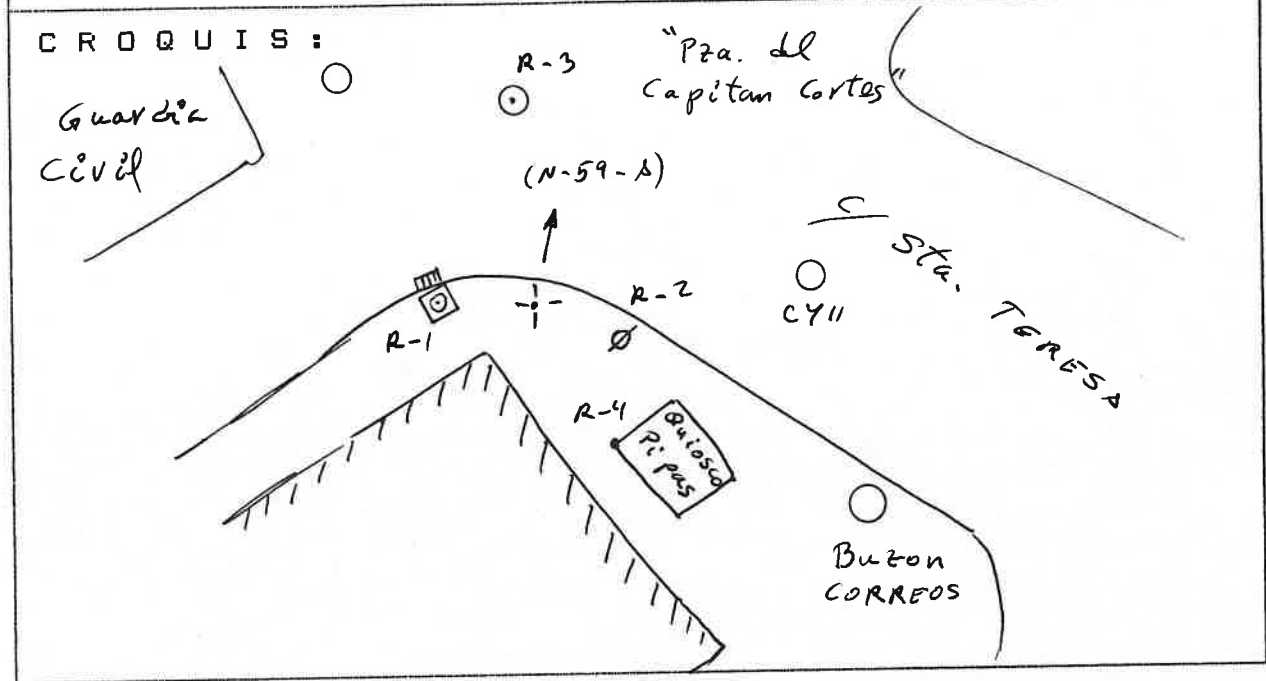 CROQUIS:
Guardia
Civil
R-3
"Pza. del
Capitan Cortes"
(N-59-A)
C
Sta. TERESA
CYII
R-2
R-1
R-4
Quiosco
Pipas
Buzon
CORREOS